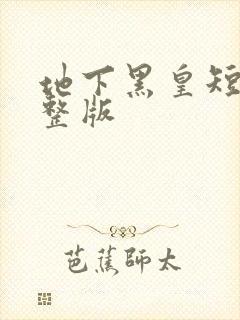 地下黑皇短
整版
芭蕉師太